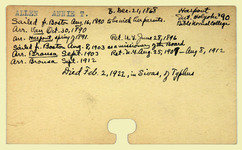 ALLEN ANNIE T. B. Dec. 21, 1868 Harpoot
Sailed fr. Boston Aug. 16, 1890 to her Parents. Mt. Holyoke '90
Arr. Van Oct. 30, 1890 Bible Normal College
Arr. Harpoot, spring of 1891. Ret. U.S. June 28, 1896
Sailed fr. Boston Aug. 8, 1903 as a missionary of the Board
Arr. Brousa Sept. 1903 Ret. U.S. Aug. 25, 1909 — Aug. 5, 1912
Arr. Brousa Sept. 1912
Died Feb. 2, 1922, in Sivas, of Typhus